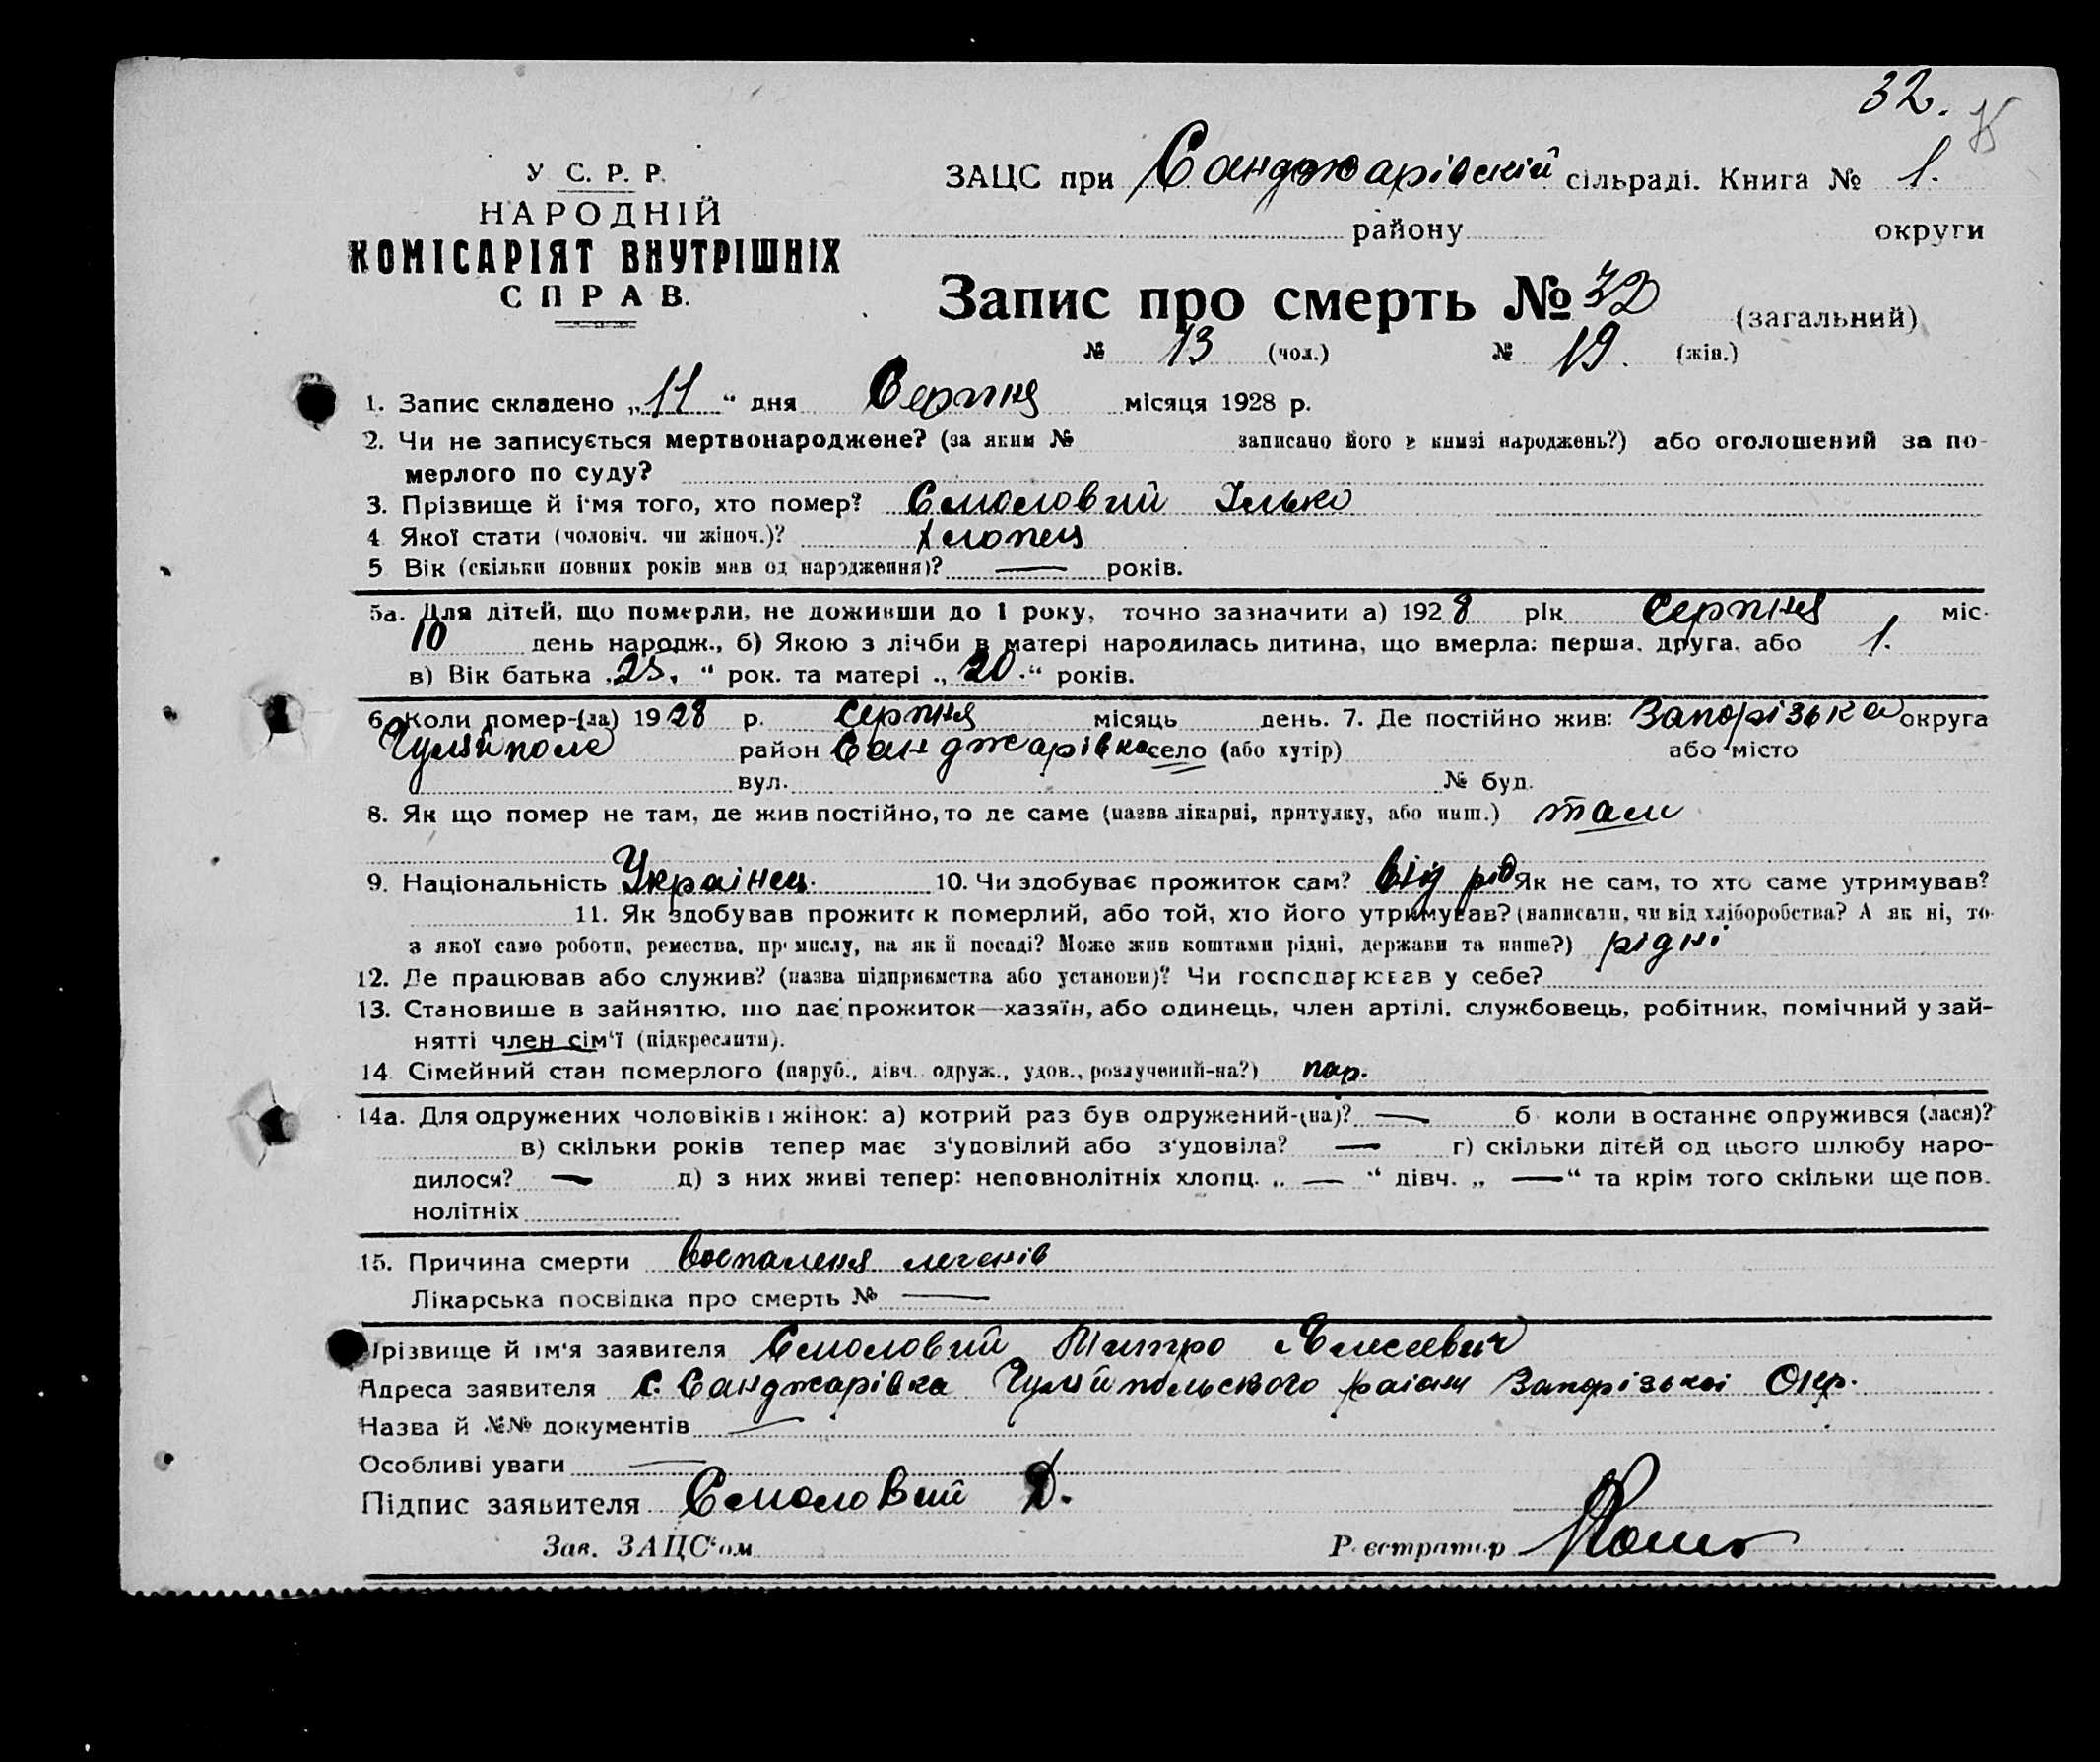 32.
У С. Р. Р.
НАРОДНІЙ
КОМІСАРІЯТ ВНУТРІШНІХ
СПРАВ.
ЗАЦС при Санджарівскій сільраді. Книга № 1.
району округи
Запис про смерть № 32 (загальний)
№ 13 (чол.) № 19. (жін.)
1. Запис складено „11“ дня Серпня місяця 1928 р.
2. Чи не записується мертвонароджене? (за яким № записано його в книзі народжень?) або оголошений за по-
мерлого по суду?
3. Прізвище й і'мя того, хто помер? Смоловий Ілько
4 Якої стати (чоловіч. чи жіноч.)? хлопець
5 Вік (скільки повних років мав од народження)? — років.
5а. Для дітей, що померли, не доживши до 1 року, точно зазначити а) 1928 рік Серпня міс.
10 день народж., б) Якою з лічби в матері народилась дитина, що вмерла: перша, друга, або 1.
в) Вік батька „23.“ рок. та матері „20.“ років.
6. Коли помер-(ла) 1928 р. серпня місяць день. 7. Де постійно жив: Запорізька округа
Гуляйполе район Санджарівка село (або хутір) або місто
вул. № буд.
8. Як що помер не там, де жив постійно, то де саме (назва лікарні, притулку, або инш.) там
9. Національність Українець. 10. Чи здобуває прожиток сам? від рід Як не сам, то хто саме утримував?
11. Як здобував прожиток померлий, або той, хто його утримував? (написати, чи від хліборобства? А як ні, то
з якої саме роботи, ремества, промислу, на якій посаді? Може жив коштами рідні, держави та инше?) рідні
12. Де працював або служив? (назва підприємства або установи)? Чи господарював у себе?
13. Становище в зайняттю, що дає прожиток—хазяїн, або одинець, член артілі, службовець, робітник, помічний у зай-
нятті член сім'ї (підкреслити).
14 Сімейний стан померлого (паруб., дівч. одруж., удов., розлучений-на?) пар.
14а. Для одружених чоловіків і жінок: а) котрий раз був одружений-(на)? — б) коли в останнє одружився (лася)?
в) скільки років тепер має з'удовілий або з'удовіла? — г) скільки дітей од цього шлюбу наро-
дилося? — д) з них живі тепер: неповнолітніх хлопц. „ — “ дівч. „ — “ та крім того скільки ще пов.
нолітніх
15. Причина смерти воспаленя легенів
Лікарська посвідка про смерть № —
Прізвище й ім'я заявителя Смоловий Митро
Адреса заявителя С. Санджарівка Гуляйпольского раіону Запорізькоі Окр.
Назва й №№ документів —
Особливі уваги —
Підпис заявителя Смоловий Д.
Зав. ЗАЦС'ом Реєстратор